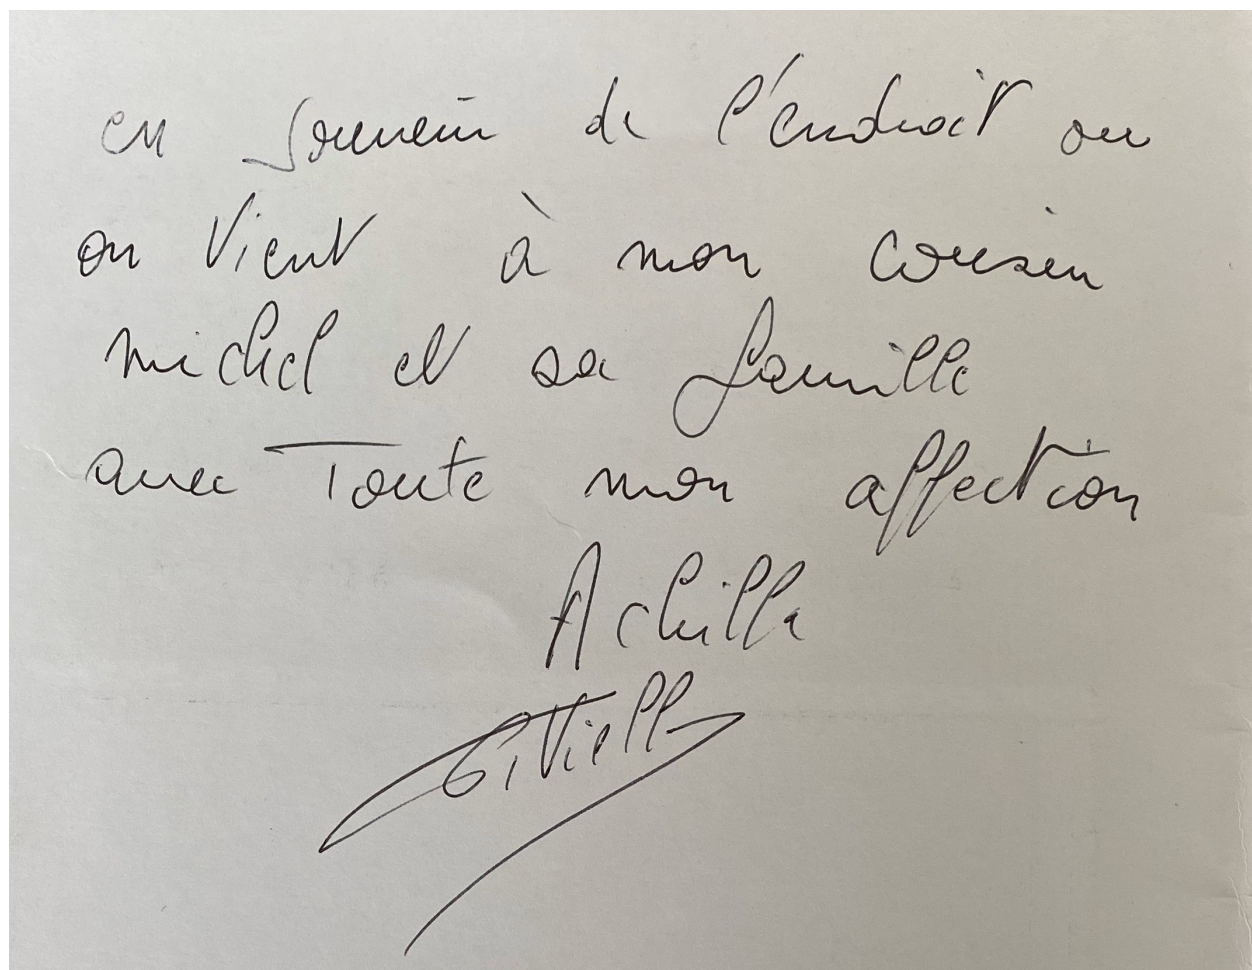 en souvenir de l'endroit ou
on vient à mon cousin
michel et sa famille
avec Toute mon affection
Achille